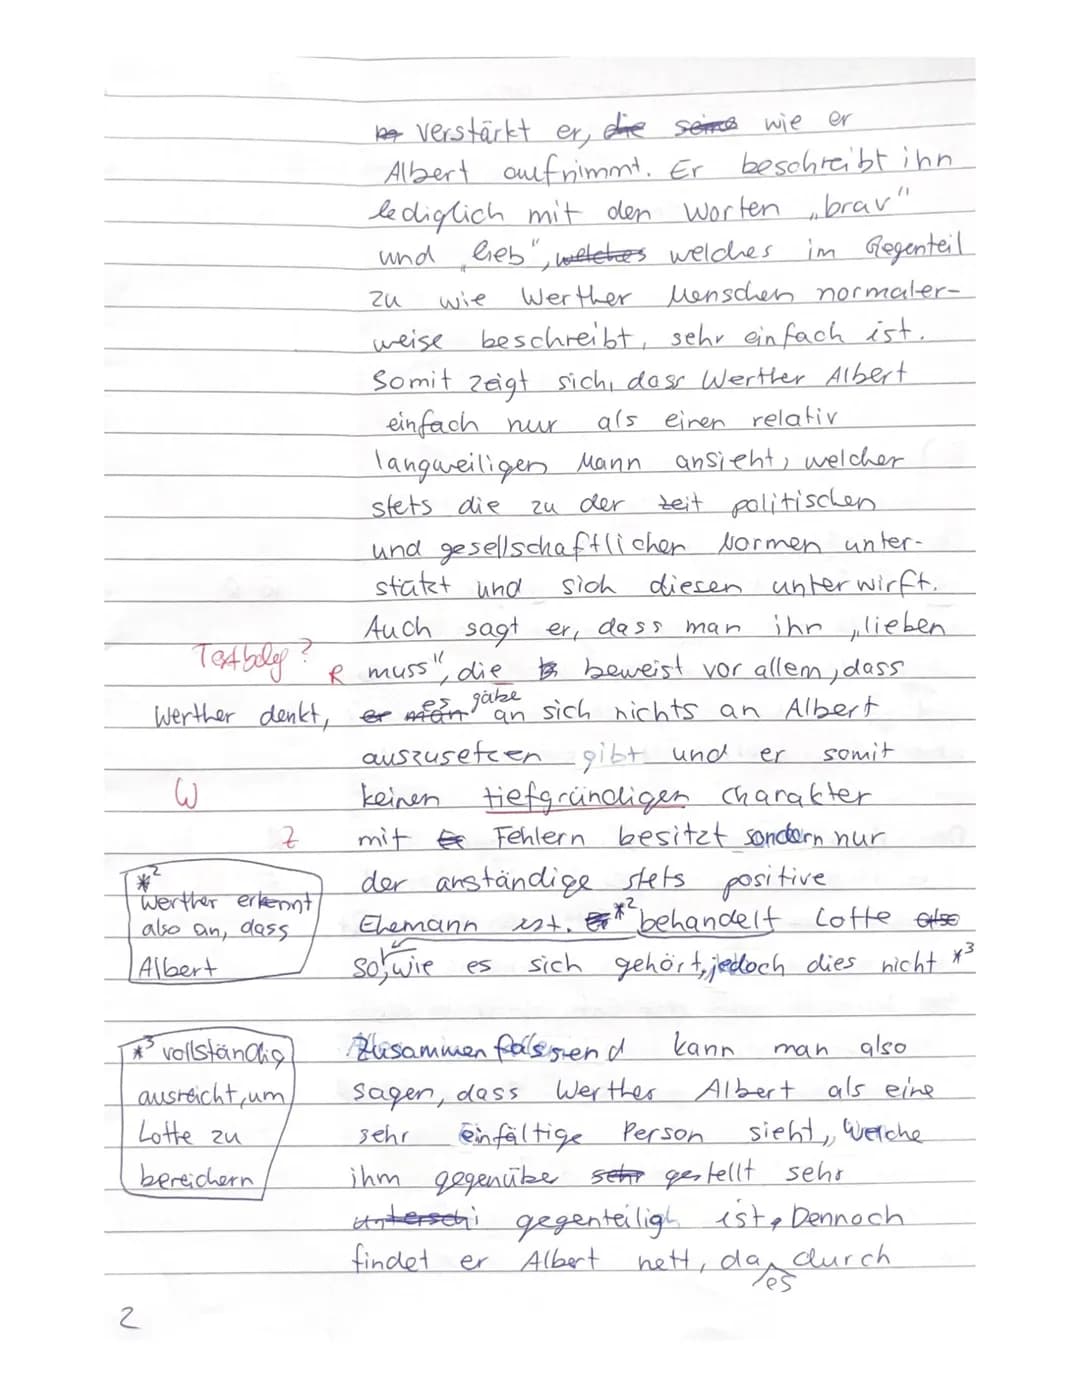 verstärkt er, die seine wie er
Albert aufnimmt. Er beschreibt ihn
lediglich mit den Worten „brav"
und „lieb", welches welches im Gegenteil
zu wie Werther Menschen normaler-
weise beschreibt, sehr einfach ist.
Somit zeigt sich, dass Werther Albert
einfach nur als einen relativ
langweiligen Mann ansieht, welcher
stets die zu der zeit politischen
und gesellschaftlichen Normen unter-
stützt und sich diesen unterwirft.
Auch sagt er, dass man ihn „lieben
Textbeleg? R muss", die beweist vor allem, dass
Werther denkt, er man es gäbe an sich nichts an Albert
auszusetzen gibt und er somit
W keinen tiefgründigen Charakter
Z mit Fehlern besitzt sondern nur
der anständige stets positive
Ehemann ist. Er *2 behandelt Lotte also
so, wie es sich gehört, jedoch dies nicht *3
*2
Werther erkennt
also an, dass
Albert
Zusammenfassend kann man also
sagen, dass Werther Albert als eine
sehr einfältige Person sieht, welche
ihm gegenübe sehr gestellt sehr
unterschi gegenteilig ist. Dennoch
findet er Albert nett, da es durch
*3 vollständig
ausreicht, um
Lotte zu
bereichern
2